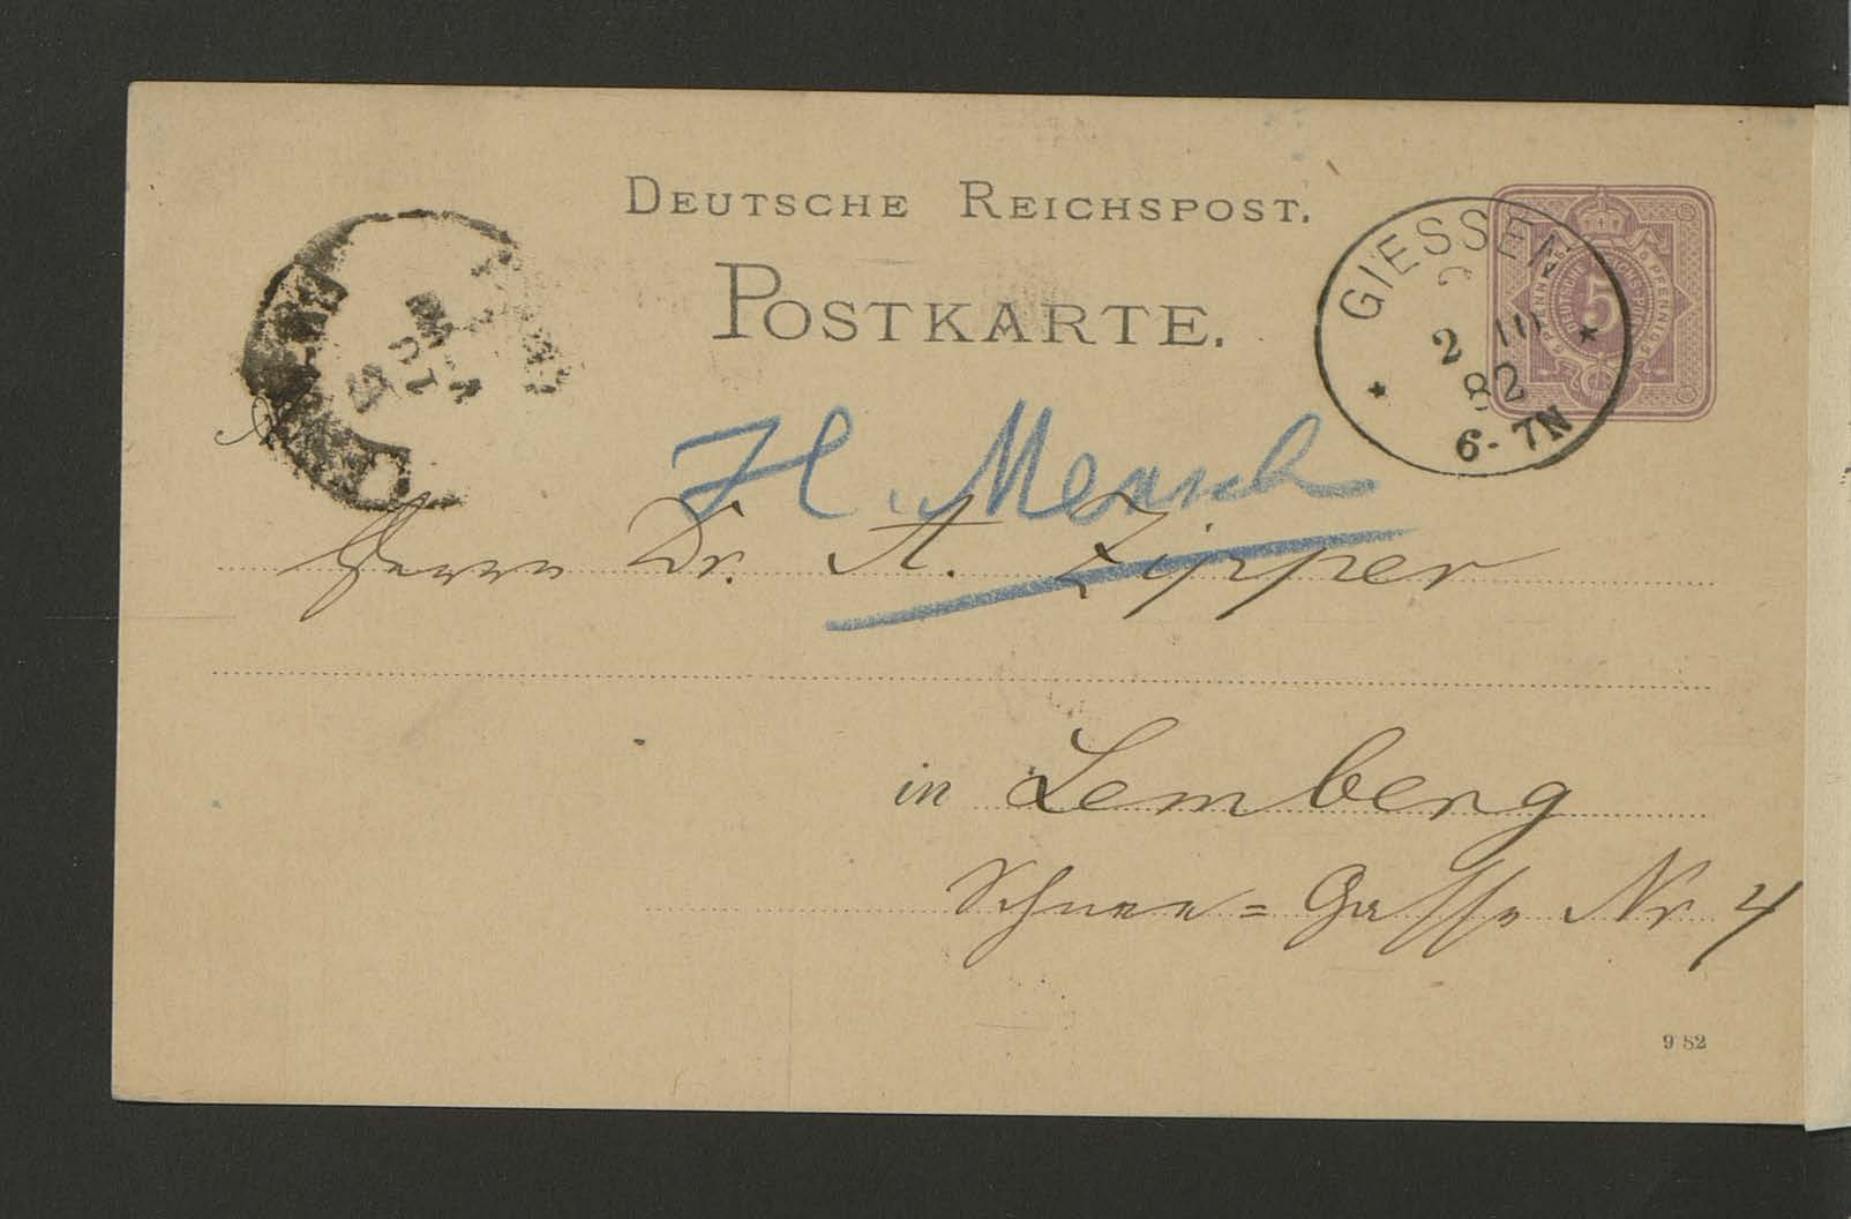 DEUTSCHE REICHSPOST.
POSTKARTE.
GIESSEN
2 10
82
6-7N
5
H. Mensch
Herrn Dr. A. Zipper
in Lemberg
Schnee=Gasse Nr 4
9 82